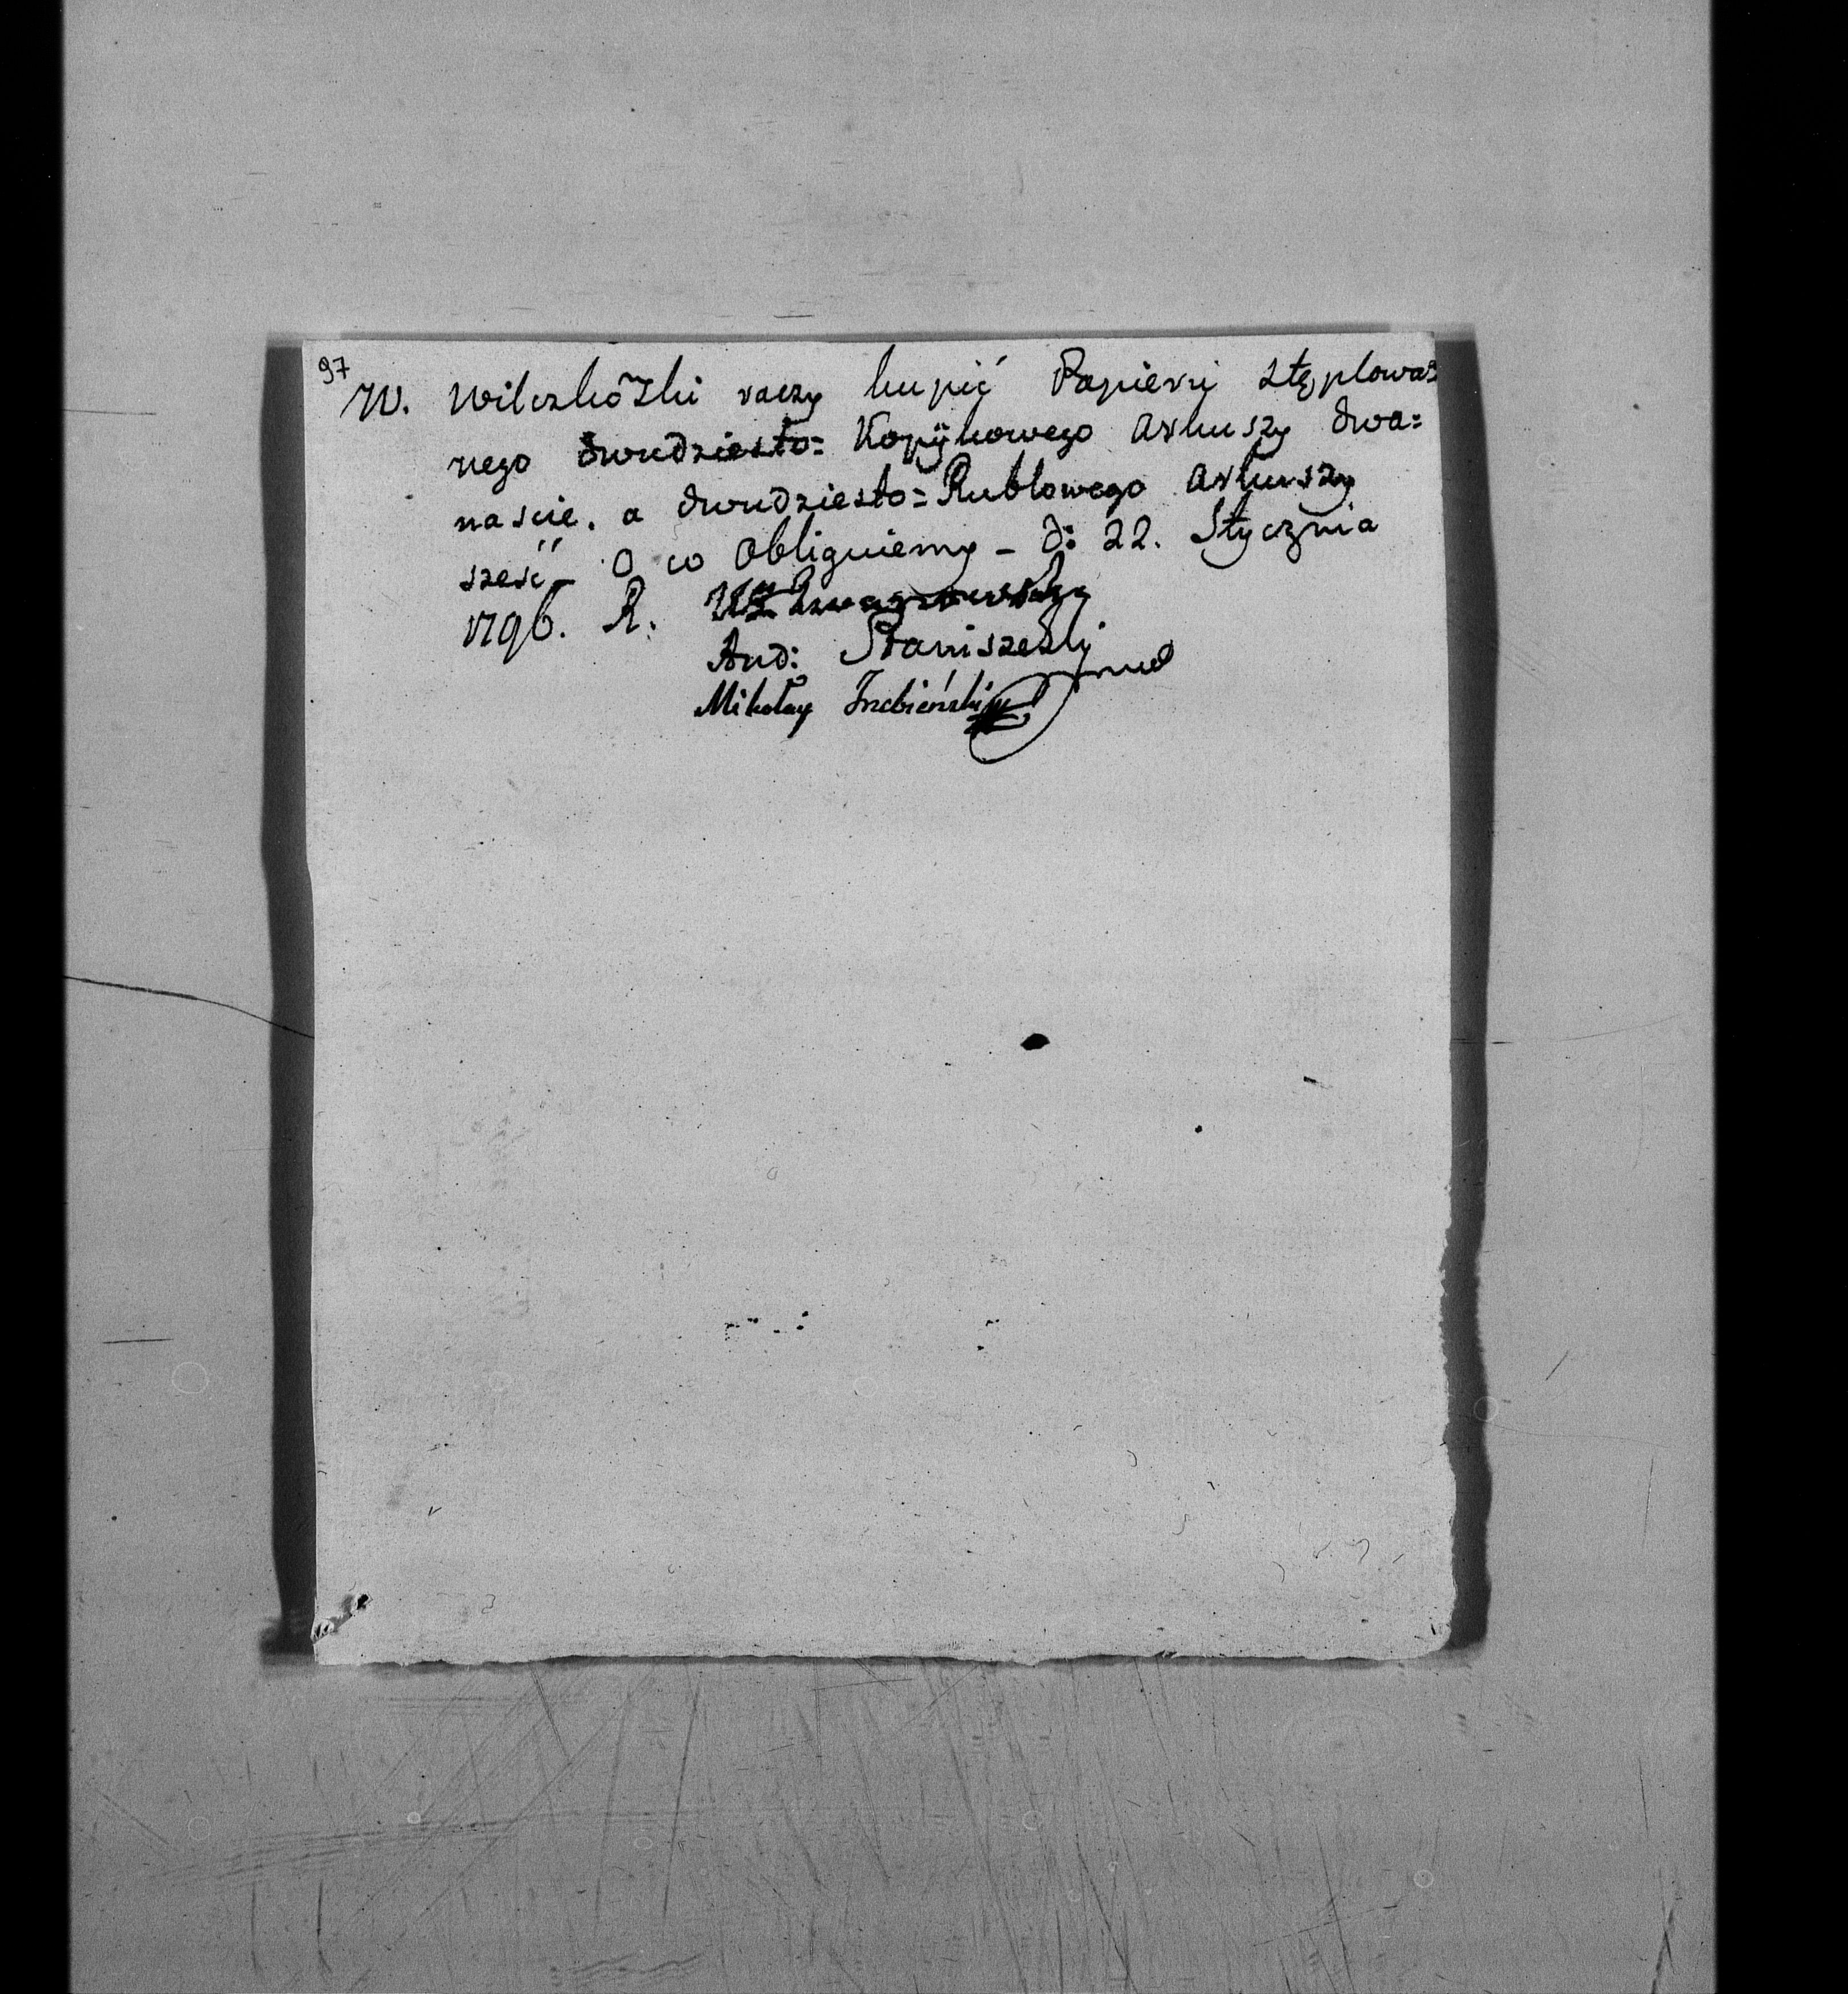 97
W. Wilczkowski raczy kupić Papieru stęplowa=
nego dwudziesto= Kopijkowego arkuszy dwa=
naście. a dwudziesto=Rublowego arkuszy
sześć – O co obliguiemy – d: 22. Stycznia
1796. R.
And: Staniszewski
Mikołay